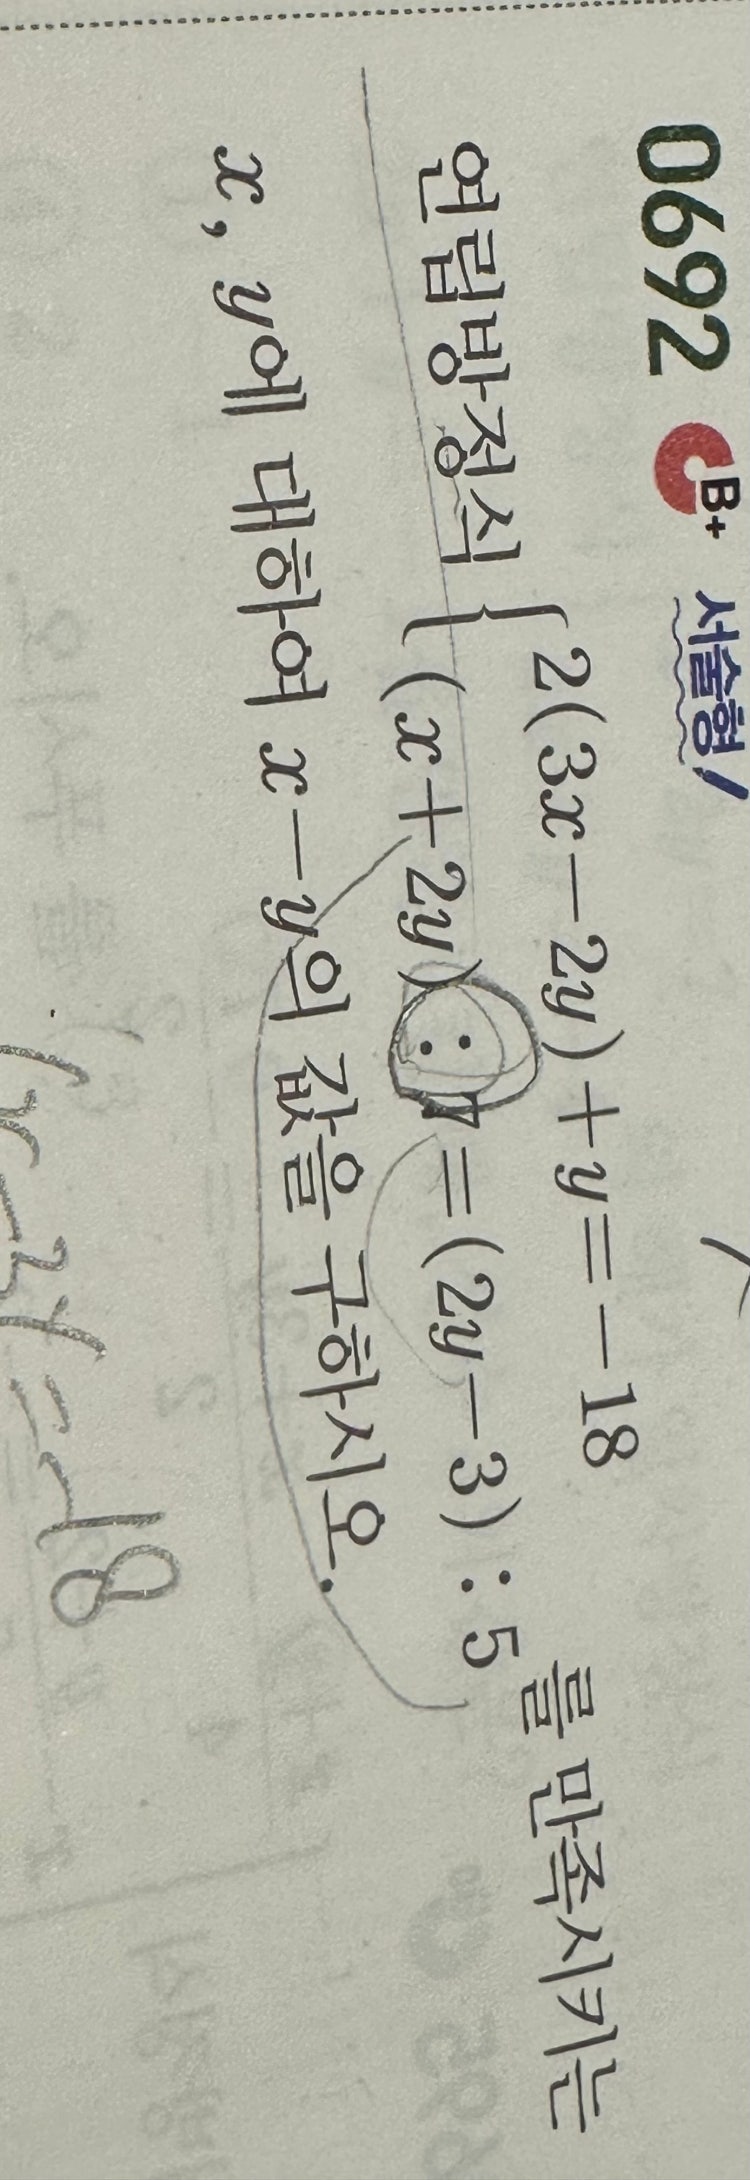 0692 B+ 서술형
연립방정식 { 2(3x-2y)+y=-18
(x+2y) : 7=(2y-3) : 5 를 만족시키는
x, y에 대하여 x-y의 값을 구하시오.
=-18